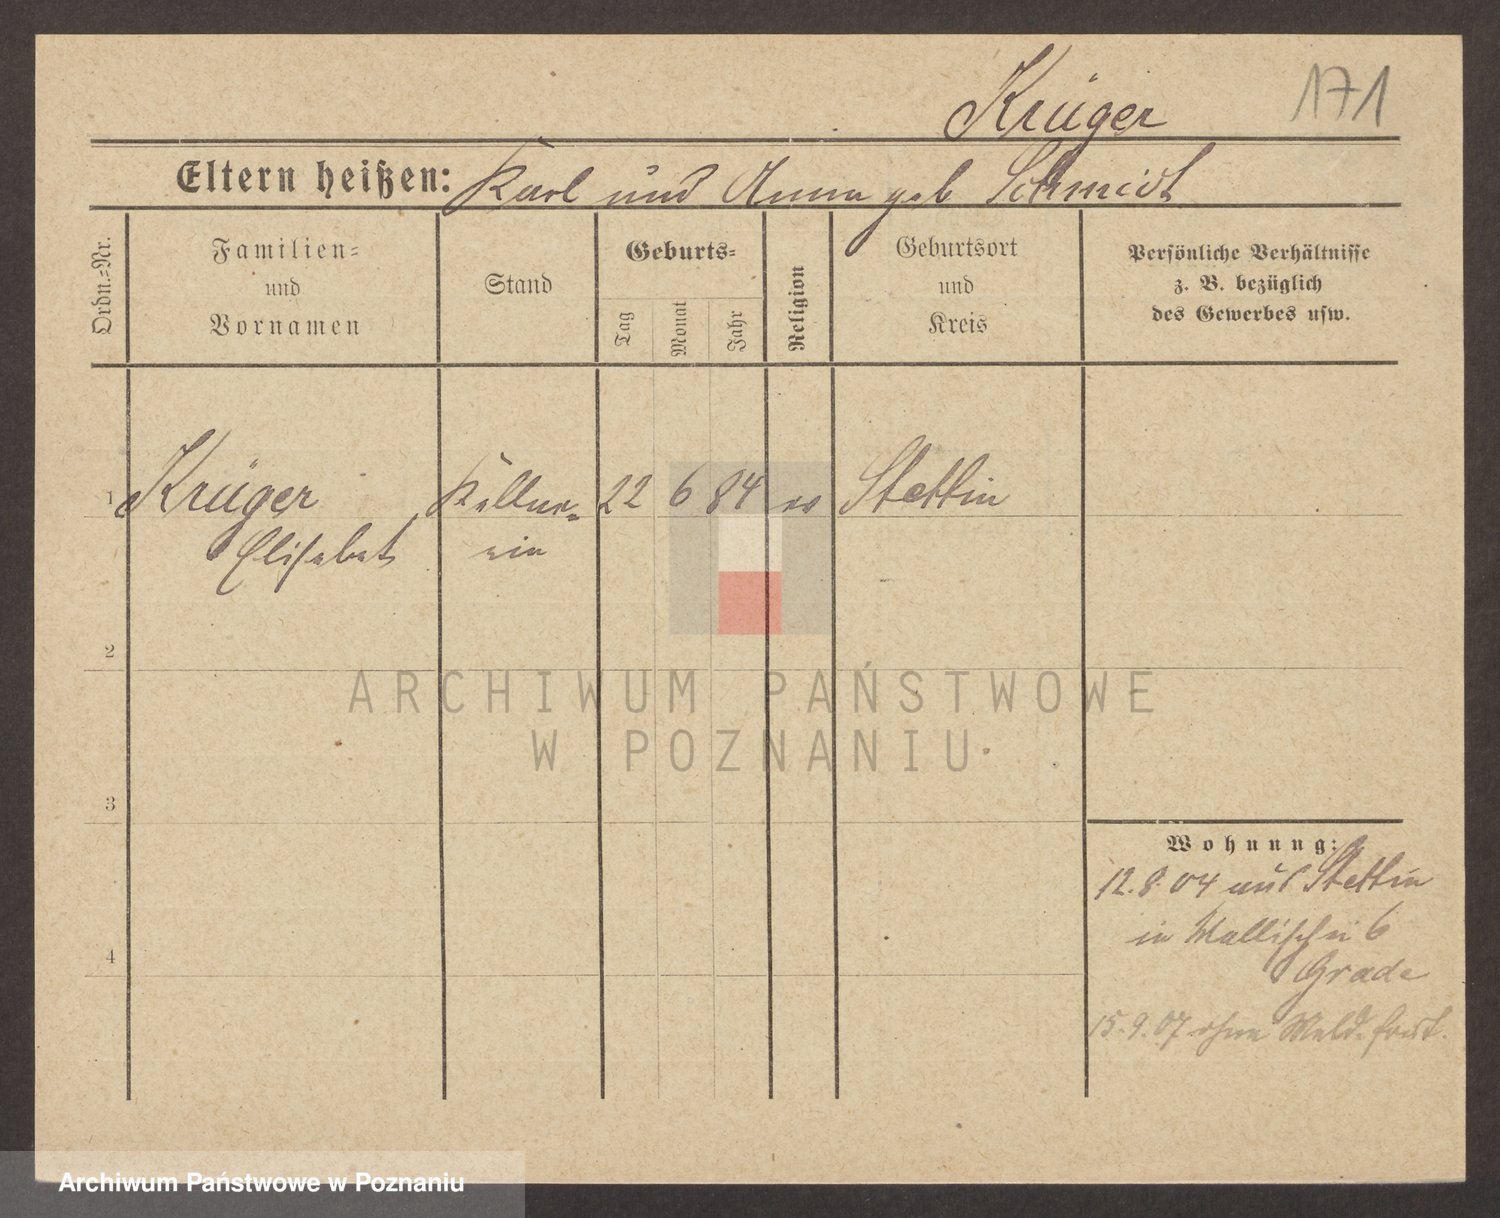 Krüger
171
Eltern heißen: Karl und Anna geb Schmidt
Ordn.=Nr.
Familien=
und
Vornamen
Stand
Geburts=
Tag
Monat
Jahr
Religion
Geburtsort
und
Kreis
Persönliche Verhältnisse
z. B. bezüglich
des Gewerbes usw.
1 Krüger Kellne= 22 6 84 ev Stettin
Elisabet rin
2
3
4
Wohnung:
12.8.04 aus Stettin
in Wallischei 6
Grade
15.9.07 ohne Meld. fort.
ARCHIWUM PAŃSTWOWE
W POZNANIU
Archiwum Państwowe w Poznaniu